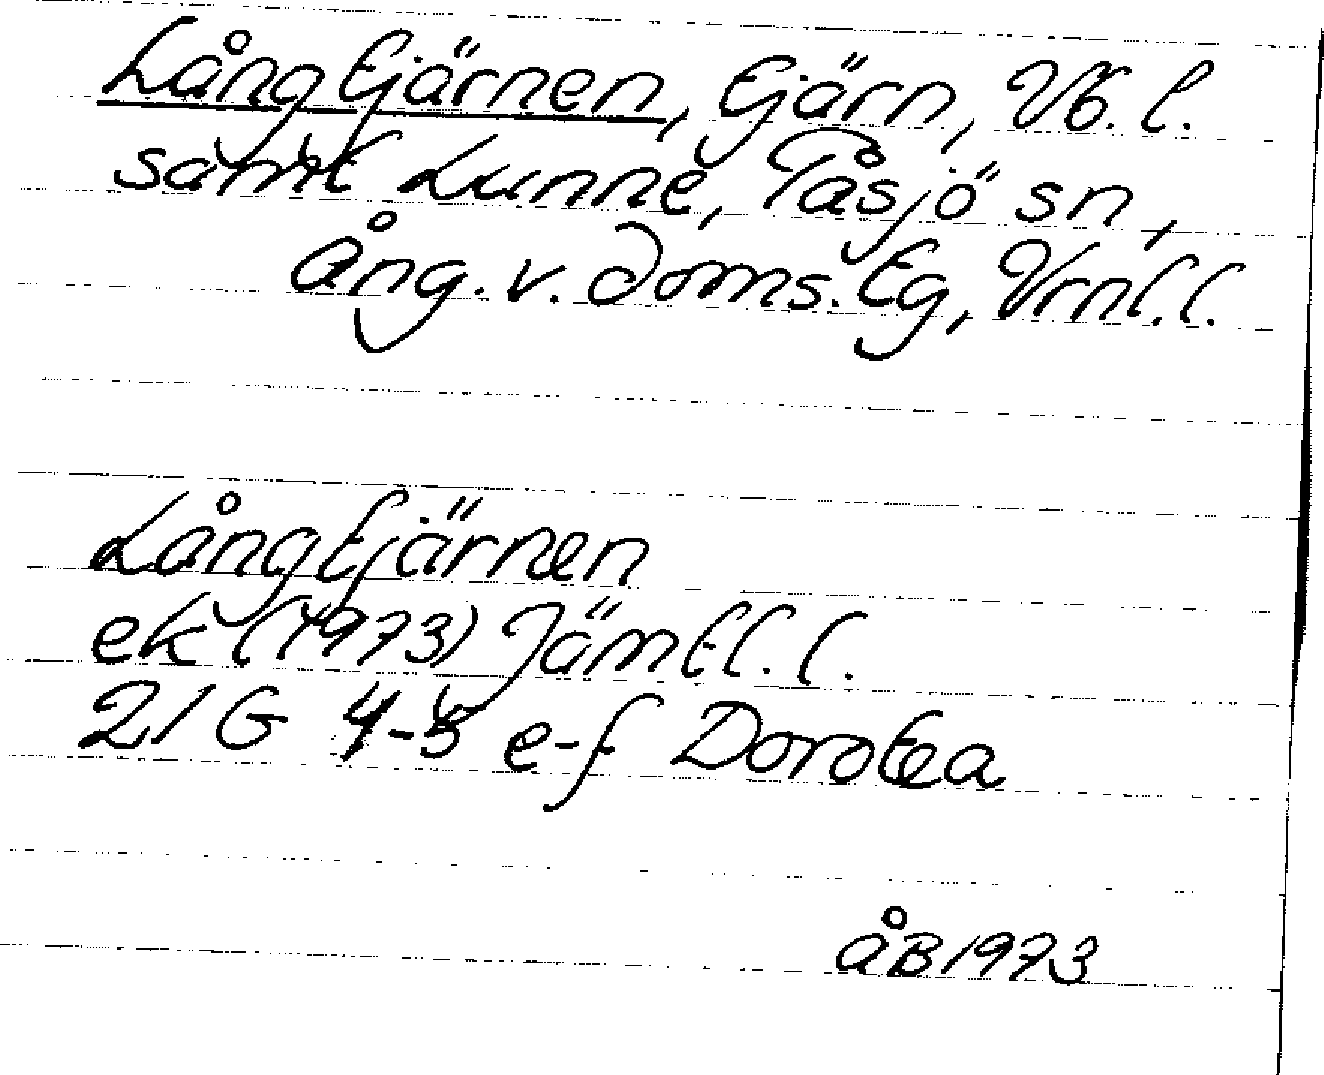 Långtjärnen, tjärn, Vb. l.
samt Lunne, Tåsjö sn,
Ång. v. doms. tg, Vrnl. l.
Långtjärnen
ek (1973) Jämtl. l.
21 G 4-5 e-f Dorotea
ÅB 1973